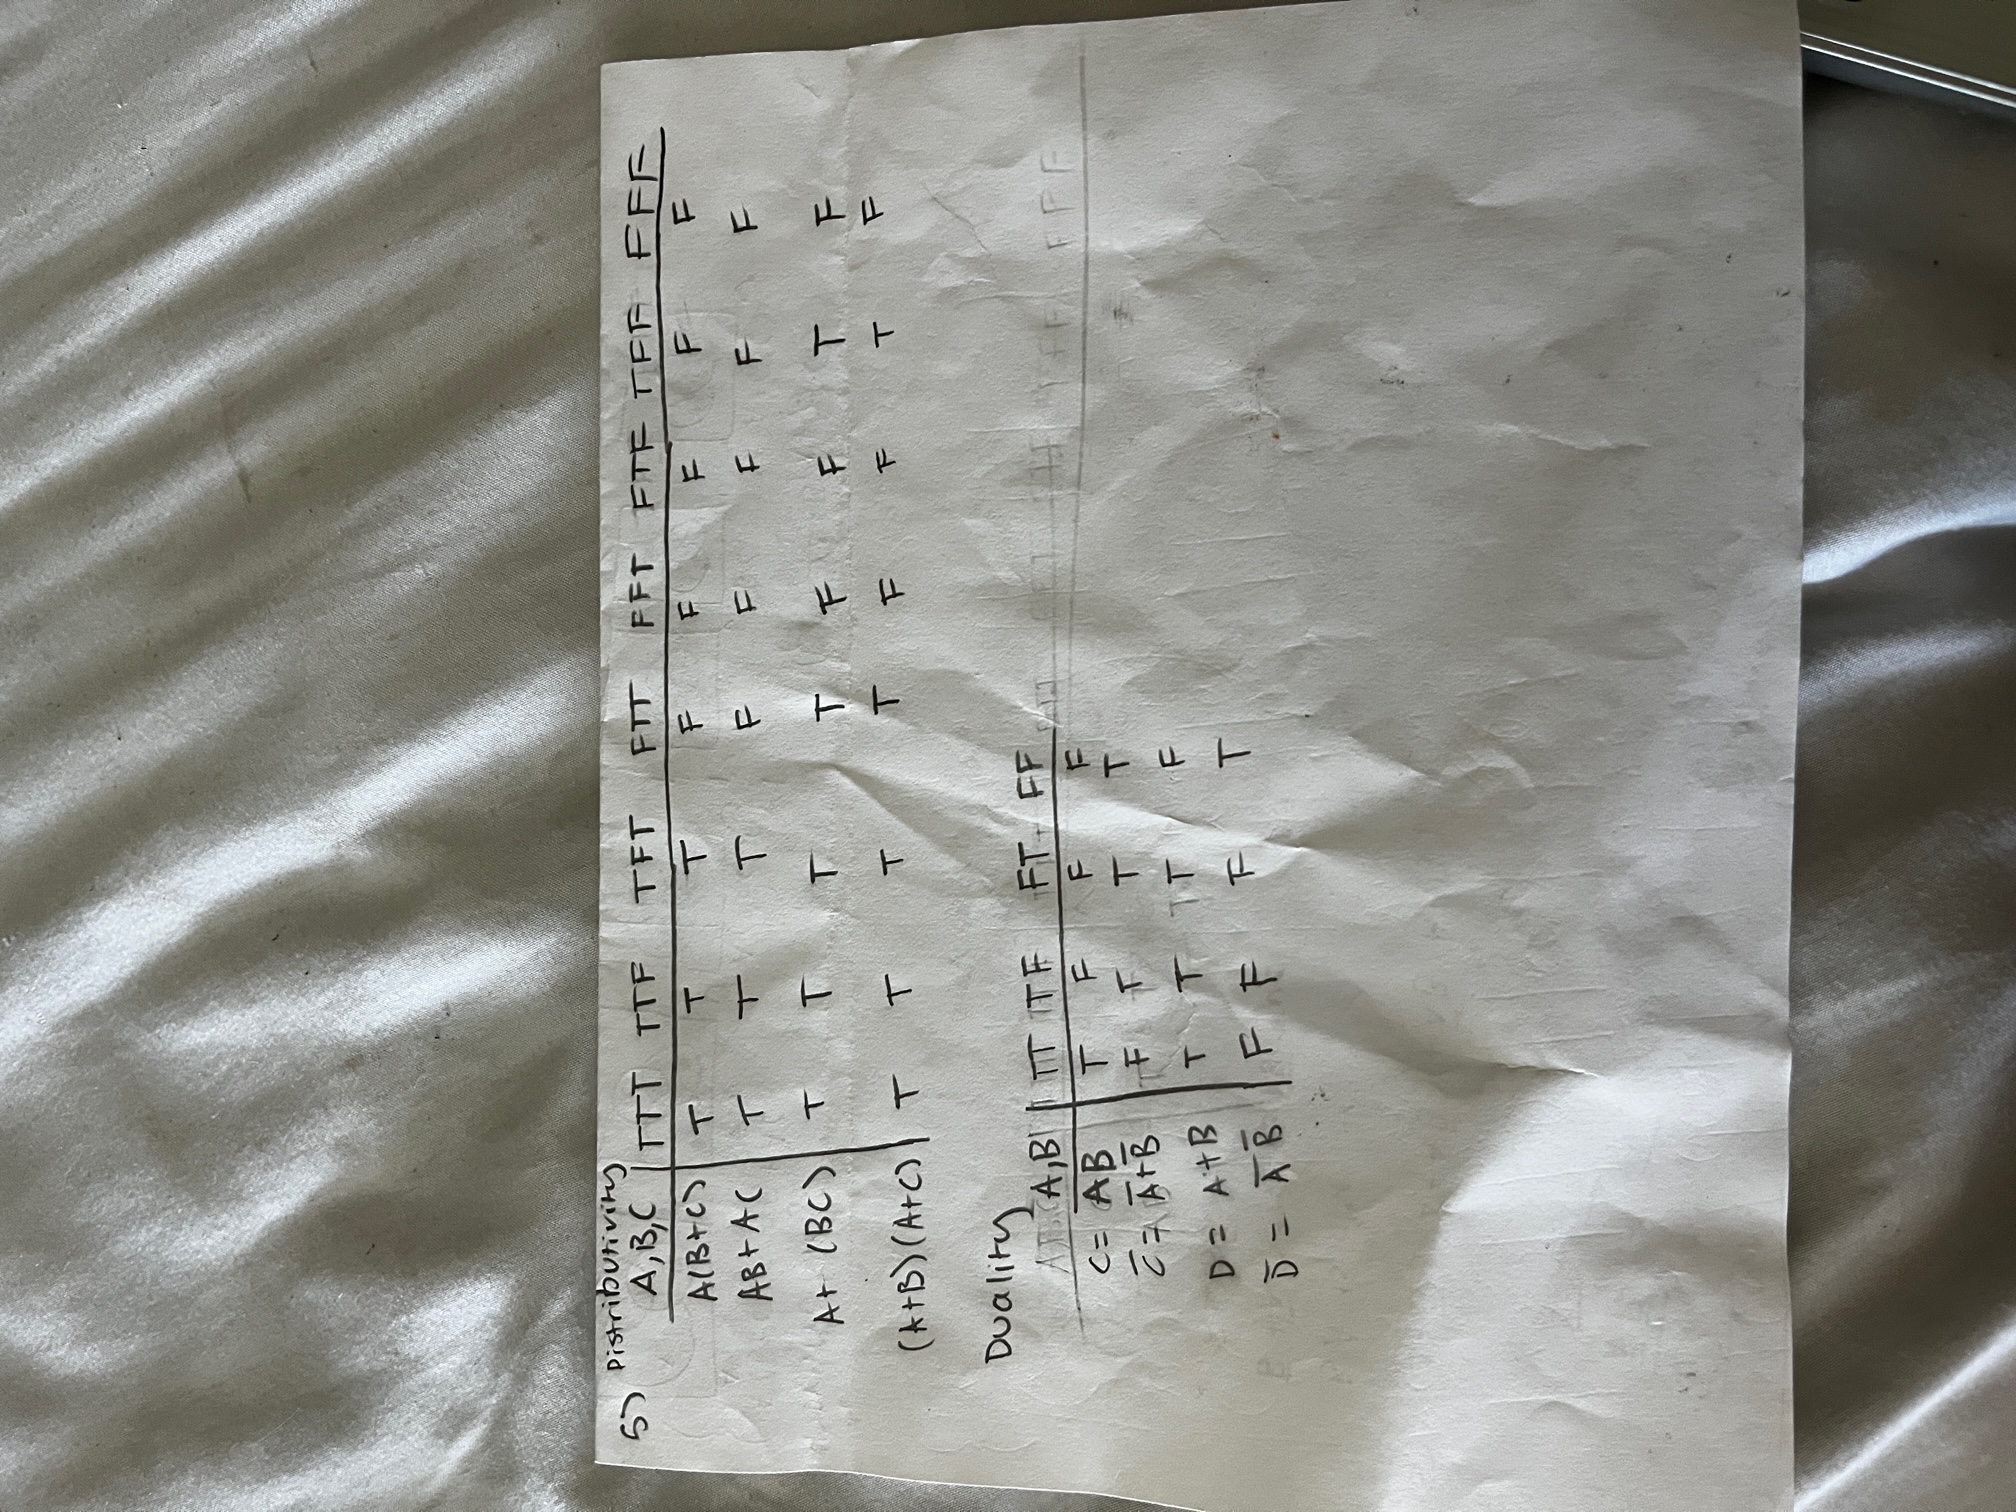 5) Distributivity
A,B,C TTT TTF TFT FTT FFT FTF TFF FFF
A(B+C) T T T F F F F F
AB+AC T T T F F F F F
A+ (BC) T T T T F F T F
(A+B)(A+C) T T T T F F T F
Duality
A,B TT TF FT FF
C= AB T F F F
C̅= A̅+B̅ F T T T
D = A+B T T T F
D̅ = A̅ B̅ F F F T